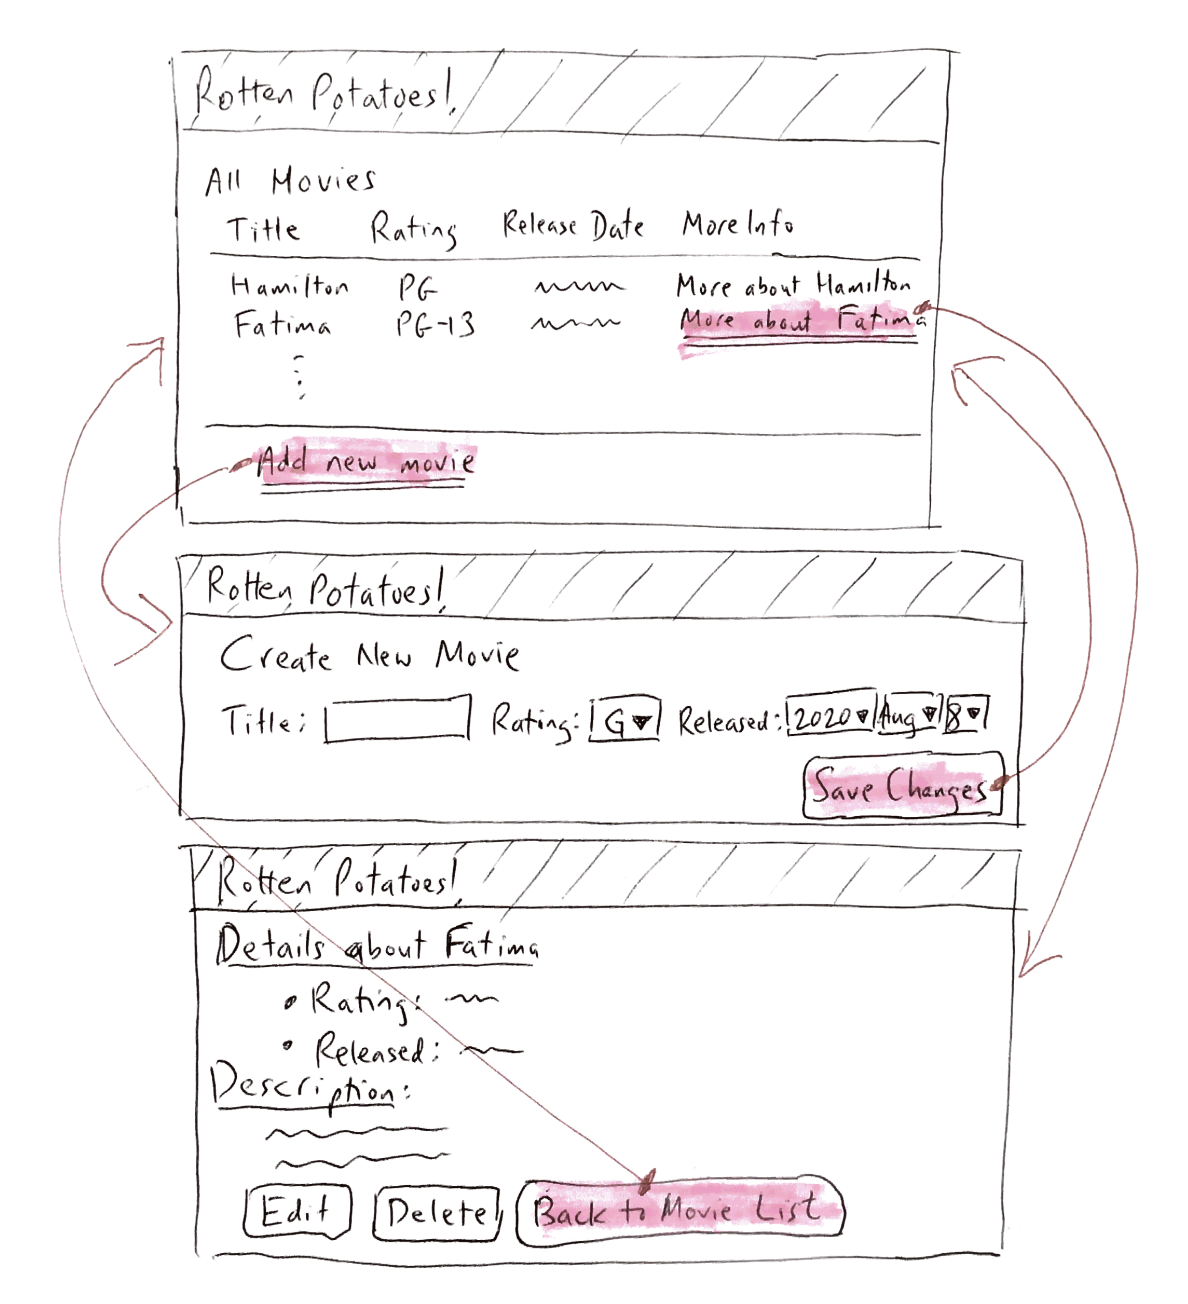 Rotten Potatoes!
All Movies
Title Rating Release Date More Info
Hamilton PG More about Hamilton
Fatima PG-13 More about Fatima
Add new movie
Rotten Potatoes!
Create New Movie
Title: Rating: G Released: 2020 Aug 8
Save Changes
Rotten Potatoes!
Details about Fatima
• Rating:
• Released:
Description:
Edit Delete Back to Movie List